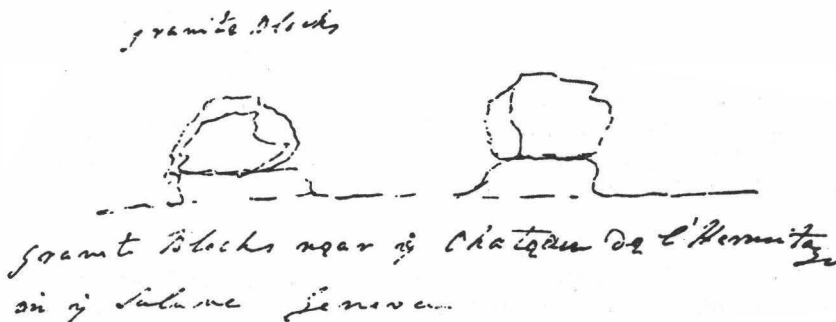 granite Blocks
granit Blocks near y Chateau de l'Hermitage
on y Saleve Geneva